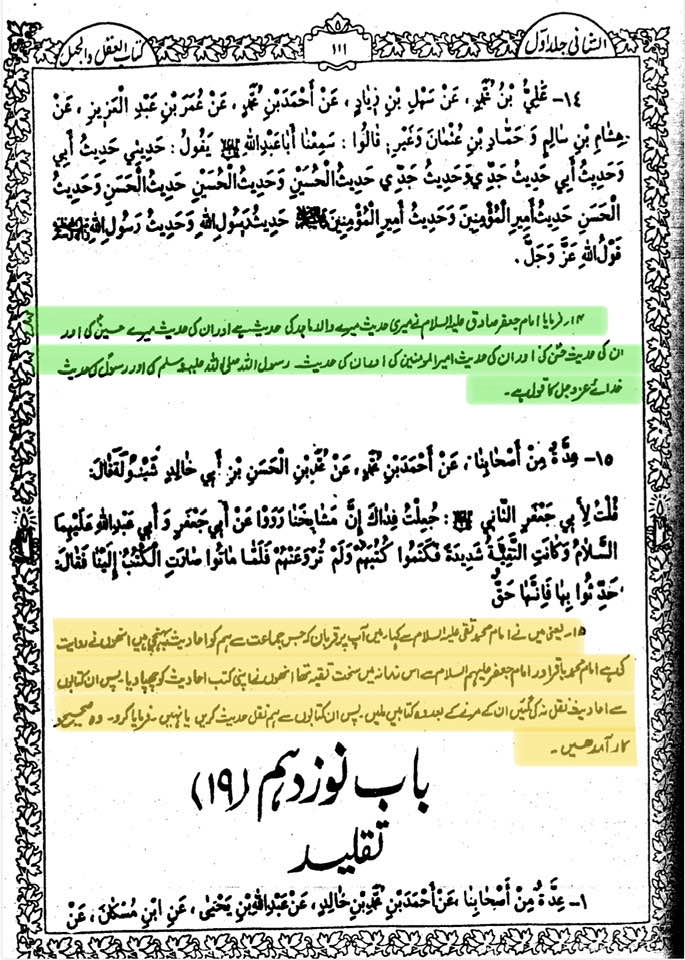 الشافی جلد اوّل
۱۱۱
کتاب العقل والجہل
١٤- عَلِيُّ بْنُ مُحَمَّدٍ، عَنْ سَهْلِ بْنِ زِيَادٍ، عَنْ أَحْمَدَبْنِ مُحَمَّدٍ، عَنْ عُمَرَبْنِ عَبْدِ الْعَزِيزِ، عَنْ
هِشَامِ بْنِ سَالِمٍ وَ حَمَّادِ بْنِ عُثْمَانَ وَغَيْرِهِ قَالُوا : سَمِعْنَا أَبَاعَبْدِاللهِ يَقُولُ : حَدِيثِي حَدِيثُ أَبِي
وَحَدِيثُ أَبِي حَدِيثُ جَدِّي وَحَدِيثُ جَدِّي حَدِيثُ الْحُسَيْنِ وَحَدِيثُ الْحُسَيْنِ حَدِيثُ الْحَسَنِ وَحَدِيثُ
الْحَسَنِ حَدِيثُ أَمِيرِ الْمُؤْمِنِينَ وَحَدِيثُ أَمِيرِ الْمُؤْمِنِينَ حَدِيثُ رَسُولِ اللهِ وَحَدِيثُ رَسُولِ اللهِ
قَوْلُ اللهِ عَزَّ وَجَلَّ .
۱۴۔ فرمایا امام جعفر صادق علیہ السلام نے میری حدیث میرے والد ماجد کی حدیث ہے اور ان کی حدیث میرے حسین کی اور
ان کی حدیث حسن کی اور ان کی حدیث امیر المومنین کی اور ان کی حدیث ۔ رسول اللہ صلی اللہ علیہ وسلم کی اور رسول کی حدیث
خدائے عزوجل کا قول ہے ۔
١٥- عِدَّةٌ مِنْ أَصْحَابِنَا، عَنْ أَحْمَدَبْنِ مُحَمَّدٍ، عَنْ مُحَمَّدِبْنِ الْحَسَنِ بْنِ أَبِي خَالِدٍ شَيْنُولَةَقَالَ:
قُلْتُ لِأَبِي جَعْفَرٍ الثَّانِي : جُعِلْتُ فِدَاكَ إِنَّ مَشَايِخَنَا رَوَوْا عَنْ أَبِي جَعْفَرٍ وَ أَبِي عَبْدِاللهِ عَلَيْهِمَا
السَّلَامُ وَكَانَتِ التَّقِيَّةُ شَدِيدَةً فَكَتَمُوا كُتُبَهُمْ وَلَمْ تُرْوَعَنْهُمْ فَلَمَّا مَاتُوا صَارَتِ الْكُتُبُ إِلَيْنَا فَقَالَ:
حَدِّثُوا بِهَا فَإِنَّهَا حَقٌّ
۱۵۔ یعنی میں نے امام محمد تقی علیہ السلام سے کہا۔ میں آپ پر قربان کہ جس جماعت سے ہم کو احادیث پہنچی ہیں انھوں نے روایت
کی ہے امام محمد باقر اور امام جعفر علیہم السلام سے اس زمانہ میں سخت تقیہ تھا انھوں نے اپنی کتب احادیث کو چھپا دیا۔ پس ان کتابوں
سے احادیث نقل نہ کی گئیں ان کے مرنے کے بعد وہ کتابیں ملیں۔ پس ان کتابوں سے ہم نقل حدیث کریں یا نہیں ۔ فرمایا کرو ۔ وہ صحیح و
کار آمد ھیں ۔
باب نوزدہم (۱۹)
تقلید
١- عِدَّةٌ مِنْ أَصْحَابِنَا ،عَنْ أَحْمَدَبْنِ مُحَمَّدِبْنِ خَالِدٍ، عَنْ عَبْدِاللهِ بْنِ يَحْيَى، عَنِ ابْنِ مُسْكَانَ، عَنْ